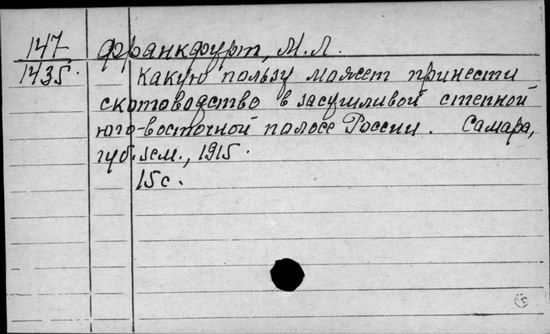 147
1435.
Франкфурт, М.Л.
Какую пользу может принести
скотоводство в засушливой степной
юго-восточной полосе России. Самара,
губ.зем., 1915.
15 с.